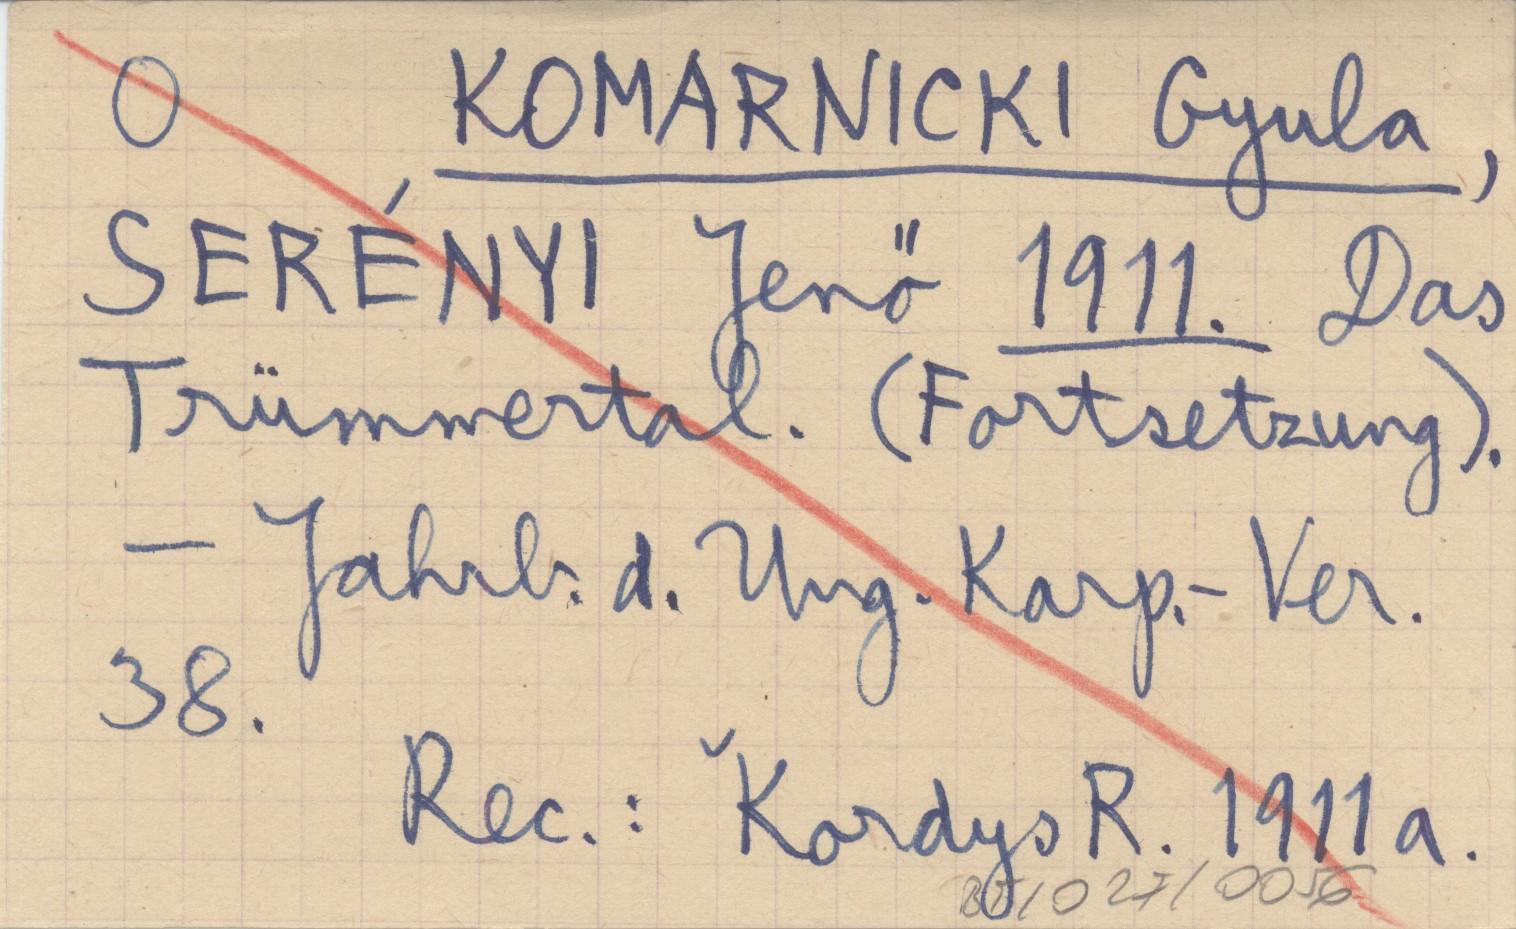 O KOMARNICKI Gyula,
SERÉNYI Jenő 1911. Das
Trümmertal. (Fortsetzung).
— Jahrb. d. Ung. Karp.-Ver.
38.
Rec.: Kordys R. 1911a.
BT/027/0056